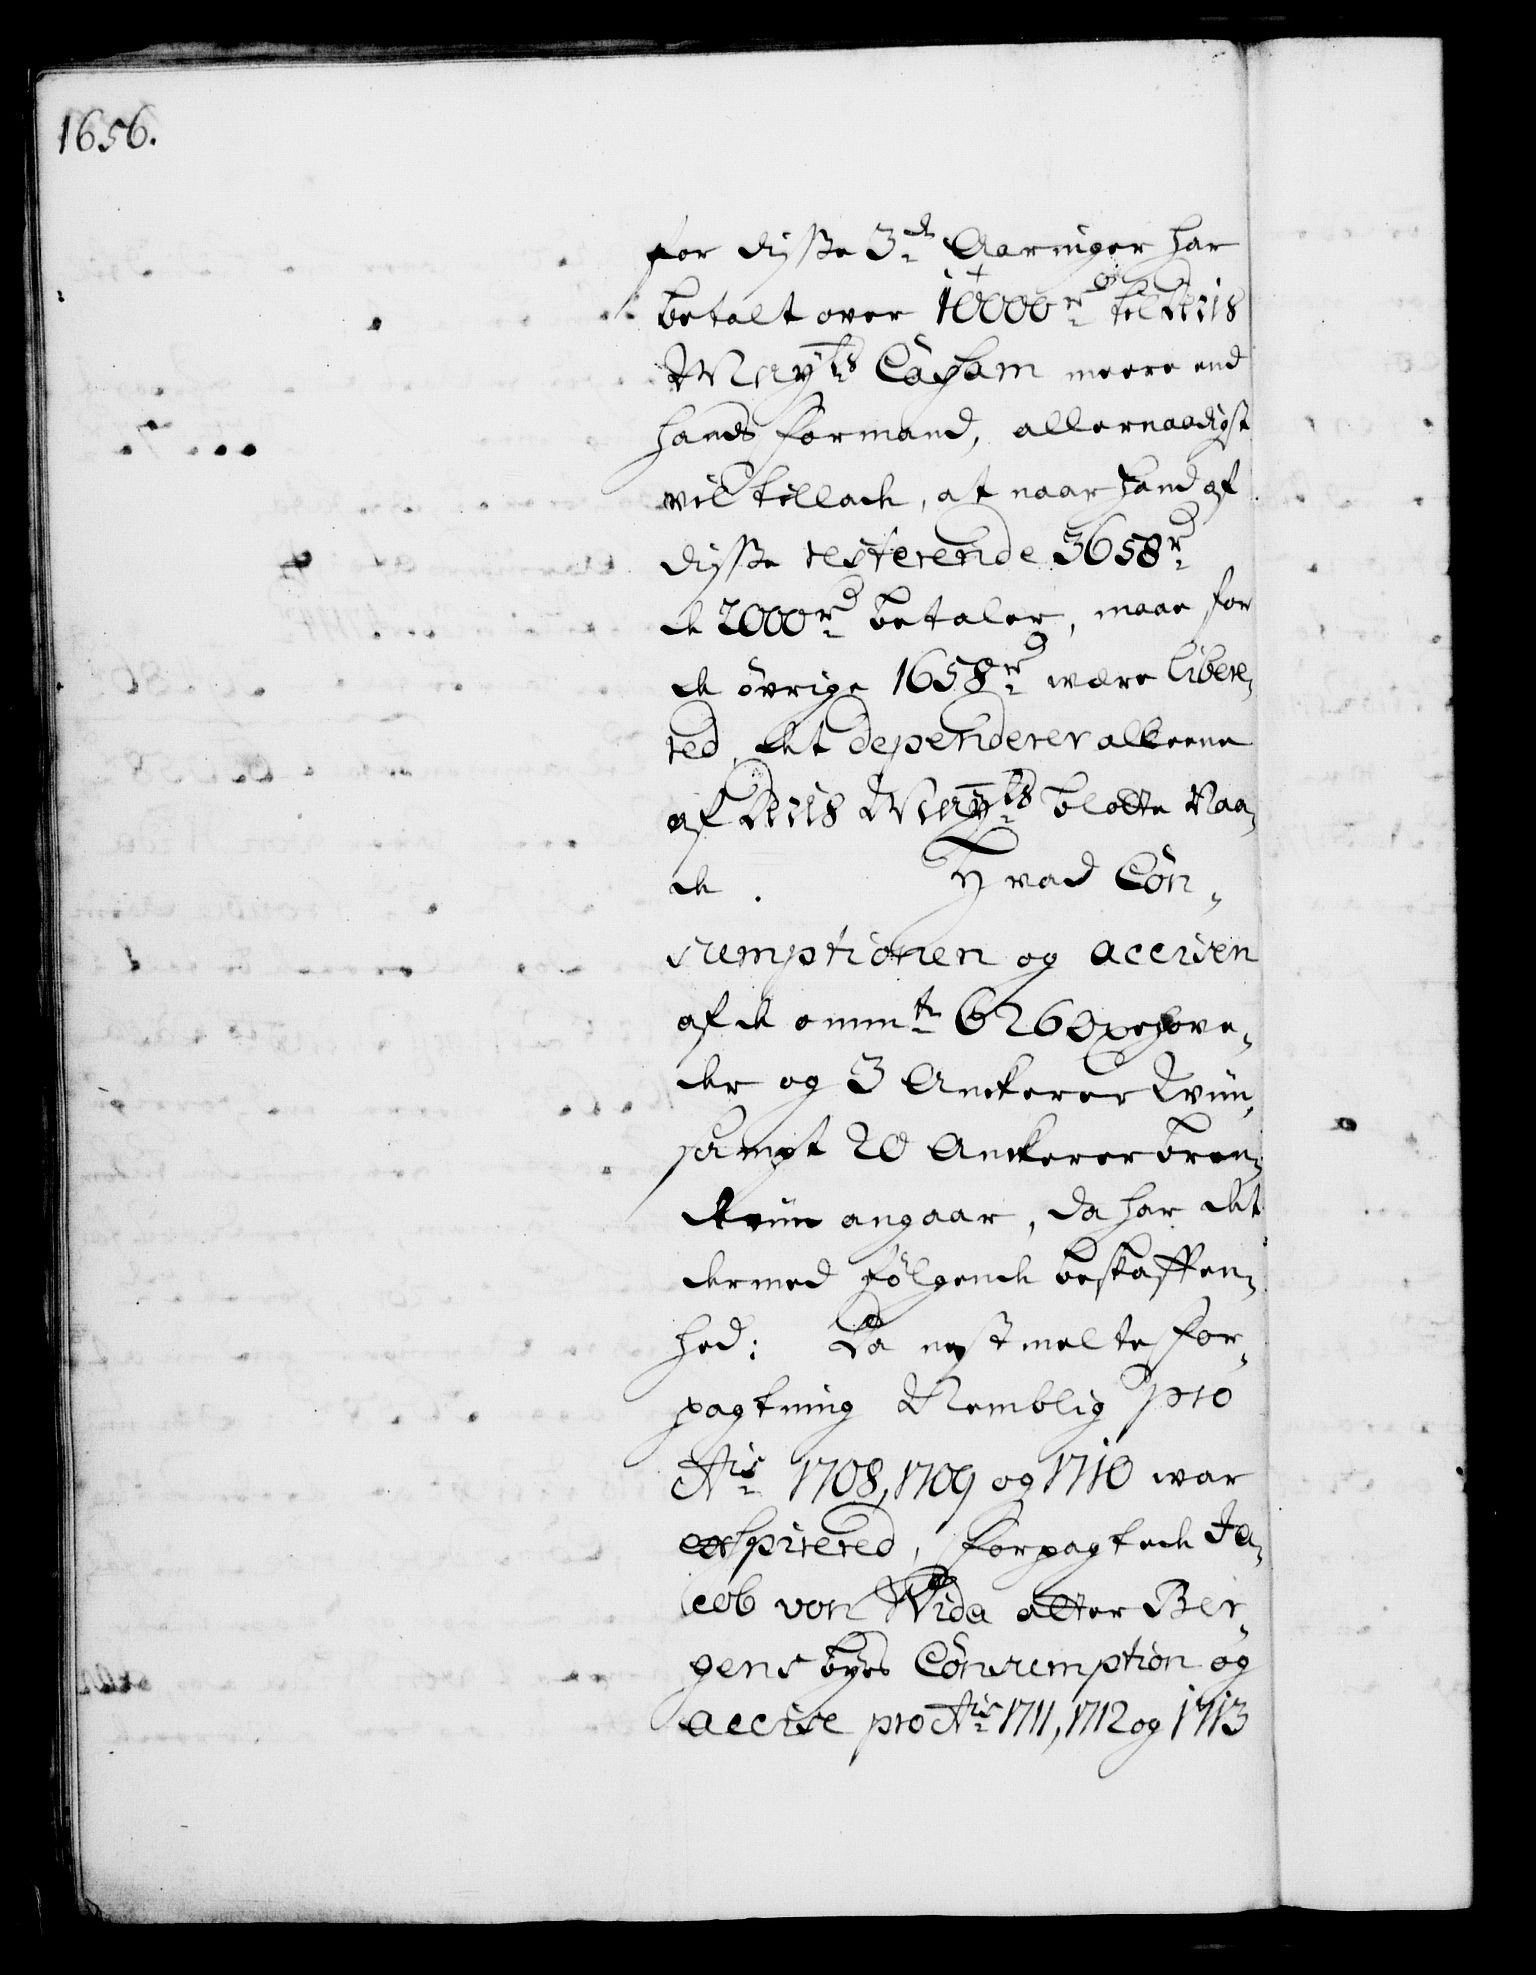 1656.
for disse 3de Aaringer har
betalt over 10000rd til Deris
Mayts Cassam meere end
hands formand, allernaadigst
vil tillade, at naar hand af
disse resterende 3658rd
de 2000rd betaler, maae for
de övrige 1658rd være libere¬
red, det dependerer alleene
af Deris Mayts blotte Naa¬
de. Hvad Con¬
sumptionen og accisen
af de ommte 626 Oxehove¬
der og 3 Anckerer Viin,
sampt 20 Anckerer bren¬
deviin angaar, da har det
dermed fölgende beskaffen¬
hed: Da nest melte for¬
pagtning Nemblig pro
Ais 1708, 1709 og 1710 war
exspirered, forpagtede Ja¬
cob von Wida atter Ber¬
gens byes Consumption og
accise pro Ais 1711, 1712 og 1713